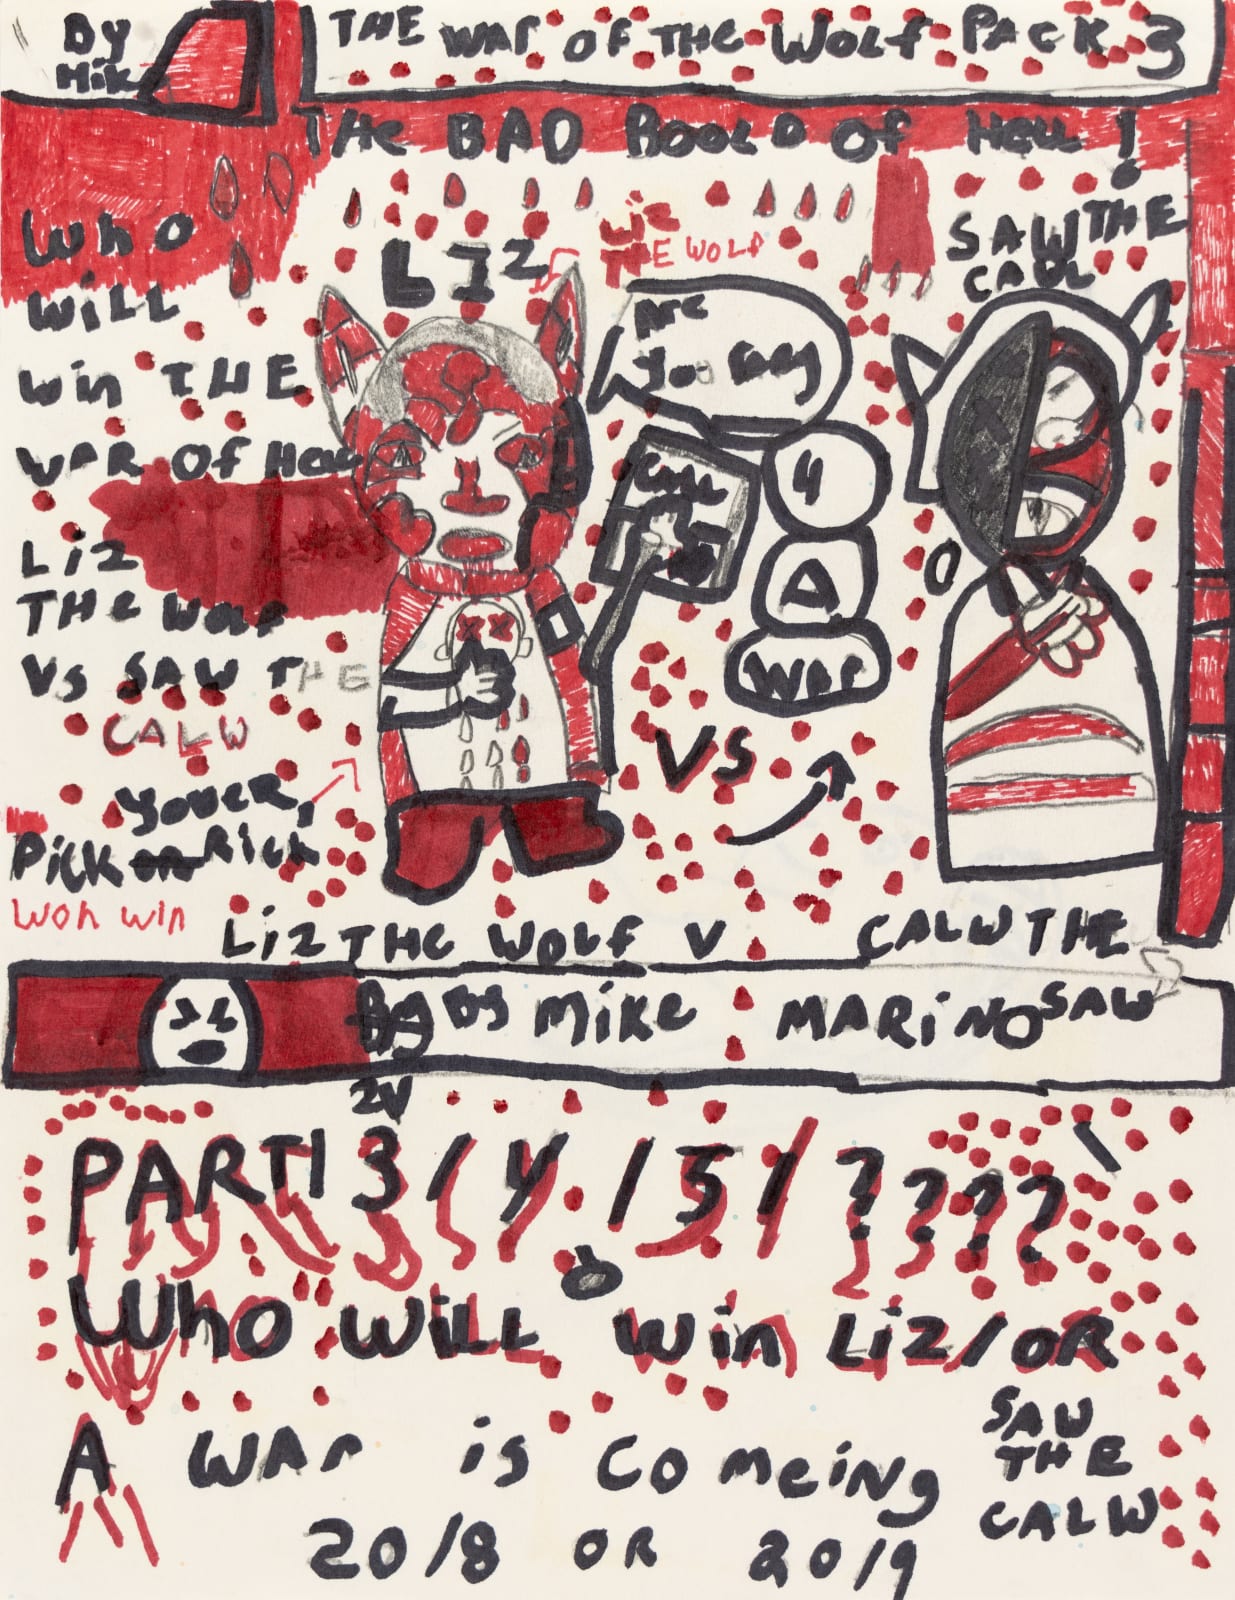 By
Mik
THE WAR OF THE WOLF PACK 3
THE BAD BOOLD OF HELL !
WHO
WILL
Win THE
WAR OF Hell
LiZ
THE WOLF
VS SAW THE
CALW
YOUER,
PICK RICK
WON WIN
LIZ
THE WOLF
SAW THE
ARE
You
4
A
WAR
VS
LIZ THE WOLF V CALW THE
SAW
BY MIKE MARINO
2V
PART 1 3 / 4 / 5 / ? ? ? ?
WHO WILL Win LIZ / OR
SAW
THE
CALW
A WAR is COMEING
2018 OR 2019